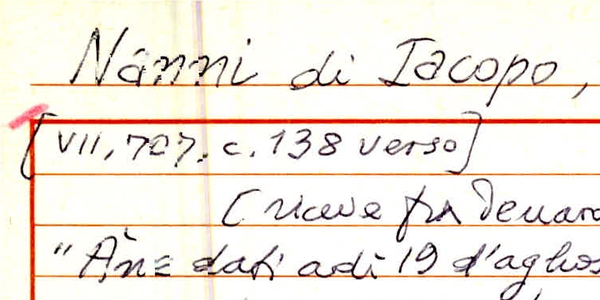 Nanni di Iacopo,
[VII, 707. c. 138 verso]
[riceve fra
"Àne dati adì 19 d'aghos